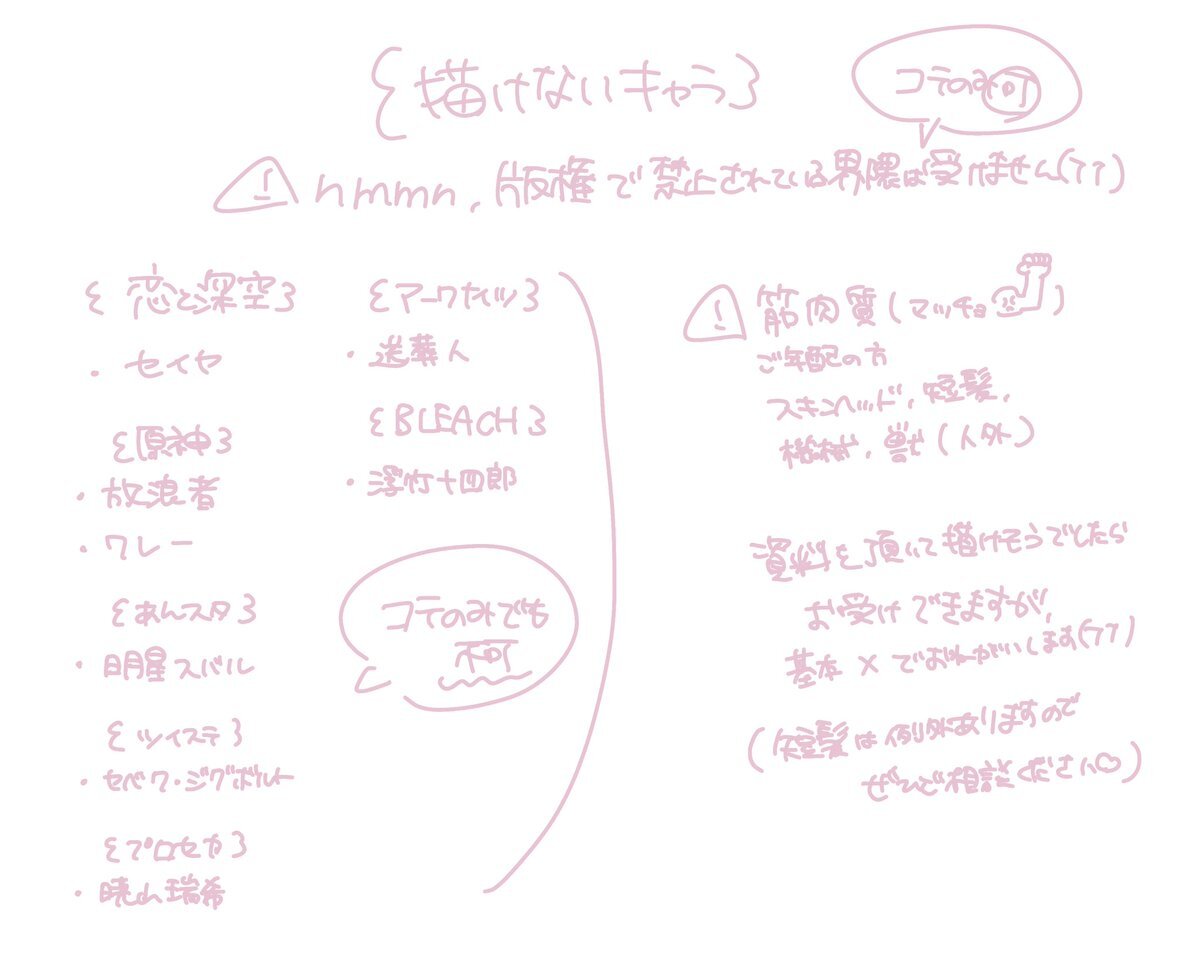 {描けないキャラ}
コテのみ可
⚠ nmmn, 版権で禁止されている界隈は受けません(TT)
{恋と深空}
・セイヤ
{原神}
・放浪者
・ワレー
{あんスタ}
・明星スバル
{ツイステ}
・セベク・ジグボルト
{プロセカ}
・暁山瑞希
{アークナイツ}
・送葬人
{BLEACH}
・浮竹十四郎
コテのみでも
不可
⚠ 筋肉質(マッチョ)
ご年配の方
スキンヘッド, 短髪,
機械, 獣(人外)
資料を頂いて描けそうでしたら
お受けできますが,
基本×でおねがいします(TT)
(短髪は例外ありますので
ぜひご相談ください♡)